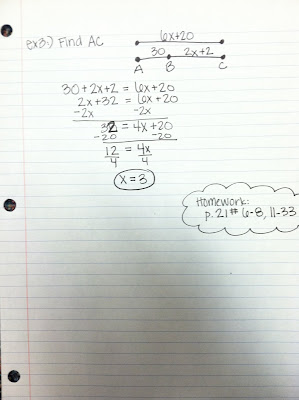 ex3:) Find AC
6x+20
30 2x+2
A B C
30+2x+2 = 6x+20
2x+32 = 6x+20
-2x -2x
32 = 4x+20
-20 -20
12 = 4x
4 4
x=3
Homework:
p. 21 # 6-8, 11-33